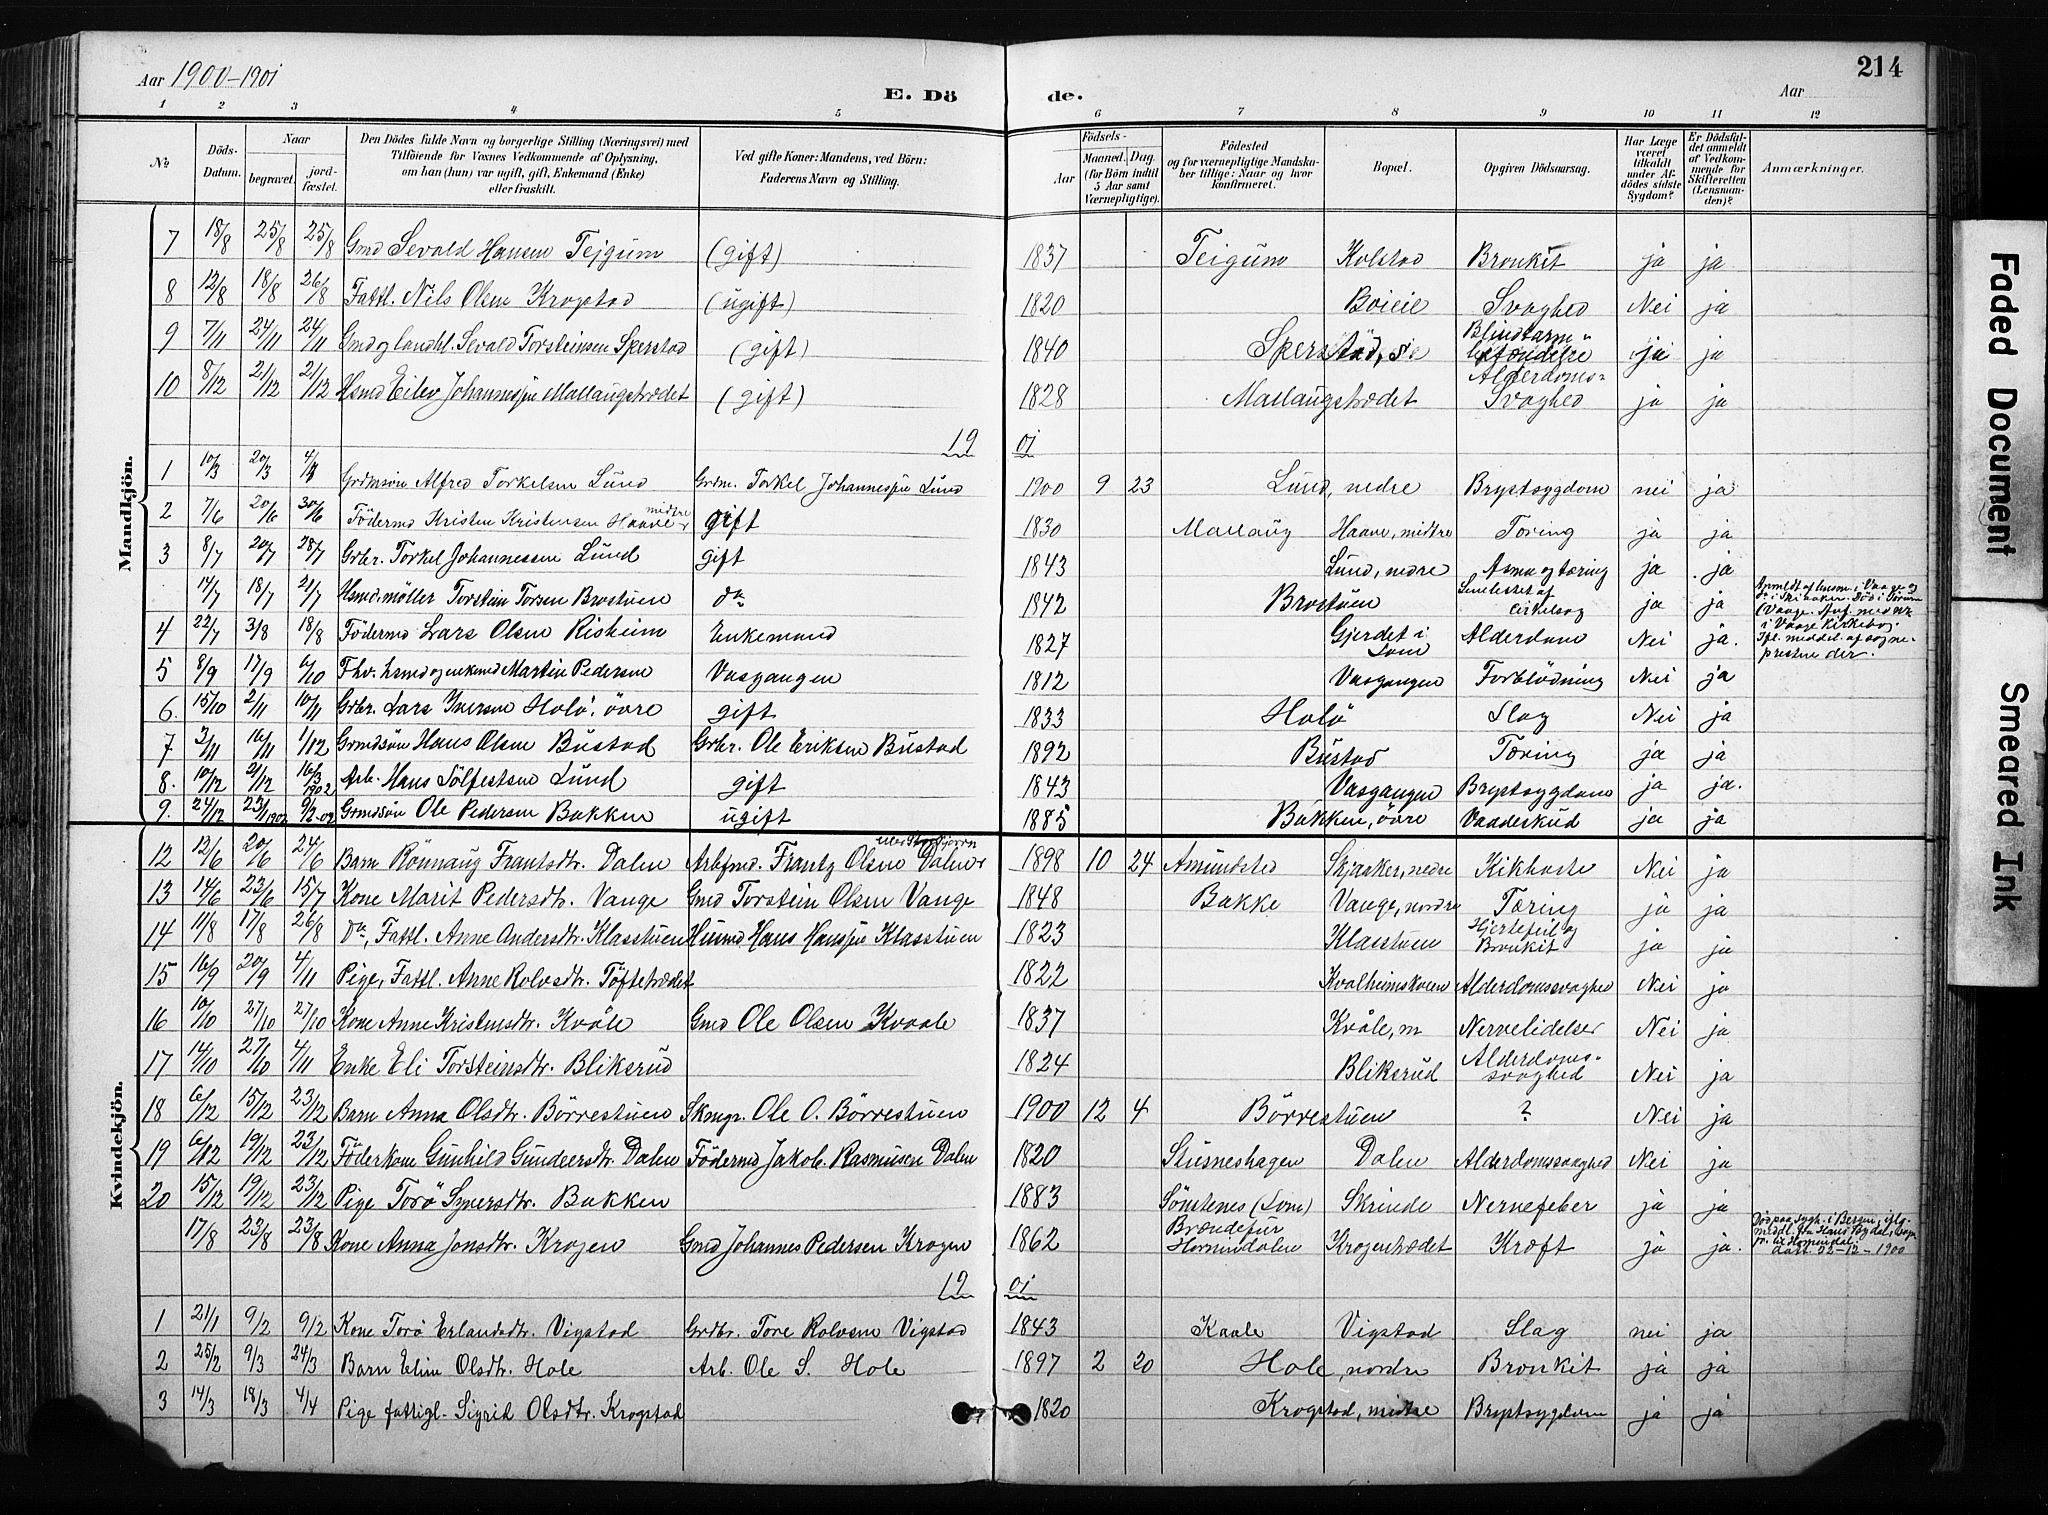 Aar 1900-1901
E. Dö de.
Aar
214
1 2 3 4 5 6 7 8 9 10 11 12
No
Döds-Datum.
Naar
begravet.
jordfæstet.
Den Dödes fulde Navn og borgerlige Stilling (Næringsvei) med
Tilföiende for Voxnes Vedkommende af Oplysning,
om han (hun) var ugift, gift, Enkemand (Enke)
eller fraskilt.
Ved gifte Koner: Mandens, ved Börn:
Faderens Navn og Stilling.
Födsels-
Aar
Maaned. Dag.
(for Börn indtil
5 Aar samt
Værnepligtige).
Födested
og for værnepligtige Mandska-
ber tillige: Naar og hvor
konfirmeret.
Bopæl.
Opgiven Dödsaarsag.
Har Læge
været
tilkaldt
under Af-
dödes sidste
Sygdom?
Er Dödsfal-
det anmeldt
af Vedkom-
mende for
Skifteretten
(Lensman-
den)?
Anmærkninger.
Mandkjön.
7 18/8 25/8 25/8 Gmd Sevald Hansen Tejgum (gift) 1837 Teigum Kolstad Bronkit ja ja
8 12/8 18/8 26/8 Fattl. Nils Olsen Krogstad (ugift) 1820 Boieie Svaghed Nei ja
9 7/11 24/11 24/11 Gmd og landhl. Sevald Torsteinsen Sperstad (gift) 1840 Sperstad, Blindtarm-betændelse ja ja
10 8/12 21/12 21/12 Hsmd Eilev Johannessen Mallaugstrædet (gift) 1828 Mallaugstrædet Alderdoms-Svaghed ja ja
1901
1 10/3 20/3 Grdmsön Alfred Torkelsen Lund Grdm. Torkel Johannessen Lund 1900 9 23 Lund, nedre Brystsygdom nei ja
2 7/6 20/6 30/6 Födermd Kristen Kristensen Haave midtre gift 1830 Mallaug Haave, midtre Tæring ja ja
3 8/7 20/7 28/7 Grbr. Torkel Johannessen Lund gift 1843 Lund, nedre Asma og tæring ja ja
14/7 18/7 21/7 Hsmd. möller Torstein Torsen Brostuen do 1842 Brostuen Lemlestet af cirkelsag ja ja
4 22/7 3/8 18/8 Födermd Lars Olsen Risheim Enkemand 1827 Gjerdet i Lom Alderdom Nei ja.
i Vaage Kirkebog.
Ifl. meddel. af sogne-
presten der.
5 8/9 17/9 6/10 Fhv. hsmd og enkemd Martin Pedersen Vasgangen 1812 Vasgangen Forblödning Nei ja
6. 15/10 2/11 10/11 Grbr. Lars Iversen Holö, övre gift 1833 Holö Slag Nei ja
7 3/11 16/11 1/12 Grmdsön Hans Olsen Bustad Grbr. Ole Eriksen Bustad 1892 Bustad Tæring ja ja
8. 10/12 21/12 16/3 1902 Arb. Hans Sölfestsen Lund gift 1843 Vasgangen Brystsygdom ja ja.
9. 24/12 23/1 1902 9/2-02 Grmdsön Ole Pedersen Bakken ugift 1885 Bakken, övre Vaadeskud ja ja
Kvindekjön.
12 12/6 20/6 24/6 Barn Rönnaug Frantsdtr. Dalen Arbfmd. Frantz Olsen Dalen 1898 10 24 Amundstad Skjaaker, nedre Kikhoste Nei ja
13 14/6 23/6 15/7 Kone Marit Pedersdtr. Vange Gmd Torstein Olsen Vange 1848 Bakke Vange, nordre Tæring ja ja
14 11/8 17/8 26/8 do, Fattl. Anne Andersdtr. Klasstuen Husmd Hans Hanssen Klasstuen 1823 Klasstuen Hjertefeil og Bronkit ja ja
15 16/9 20/9 4/11 Pige, Fattl. Anne Rolvsdtr. Töftetrædet 1822 Kvalheimskveen Alderdomssvaghed Nei ja
16 10/10 27/10 27/10 Kone Anne Kristensdtr. Kvåle Gmd Ole Olsen Kvaale 1837 Kvåle, m Nervelidelser Nei ja
17 14/10 27/10 4/11 Enke Eli Torsteinsdtr. Bliksrud 1824 Bliksrud Alderdoms-svaghed Nei ja
18 6/12 15/12 23/12 Barn Anna Olsdtr. Börrestuen Skmgr. Ole O. Börrestuen 1900 12 4 Börrestuen ? Nei ja
19 6/12 19/12 23/12 Föderkone Gunhild Gundersdtr. Dalen Födermd Jakob Rasmusen Dalen 1820 Slusneshagen Dalen Alderdomssvaghed Nei ja
20 15/12 19/12 23/12 Pige Torö Syversdtr. Bakken 1883 Sönstenes (Lom) Skrinde Nervefeber ja ja
17/8 23/8 23/8 Kone Anna Jonsdtr. Krogen Gmd Johannes Pedersen Krogen 1862 Hornindalen Krogentrædet Kræft ja ja.
Död paa syghs. i Bergen, iflg.
dat. 22-12-1900
1901
1 21/1 9/2 9/2 Kone Torö Erlandsdtr. Vigstad Grdbr. Tore Rolvsen Vigstad 1843 Kvale Vigstad Slag nei ja
2 25/2 9/3 24/3 Barn Elin Olsdtr. Hole Arb. Ole S. Hole 1897 2 20 Hole, nordre Bronkit ja ja
3 14/3 18/3 4/4 Pige fattigl. Sigrid Olsdtr. Krogstad 1820 Krogstad, midtre Brystsygdom ja ja
Faded Document
Smeared Ink